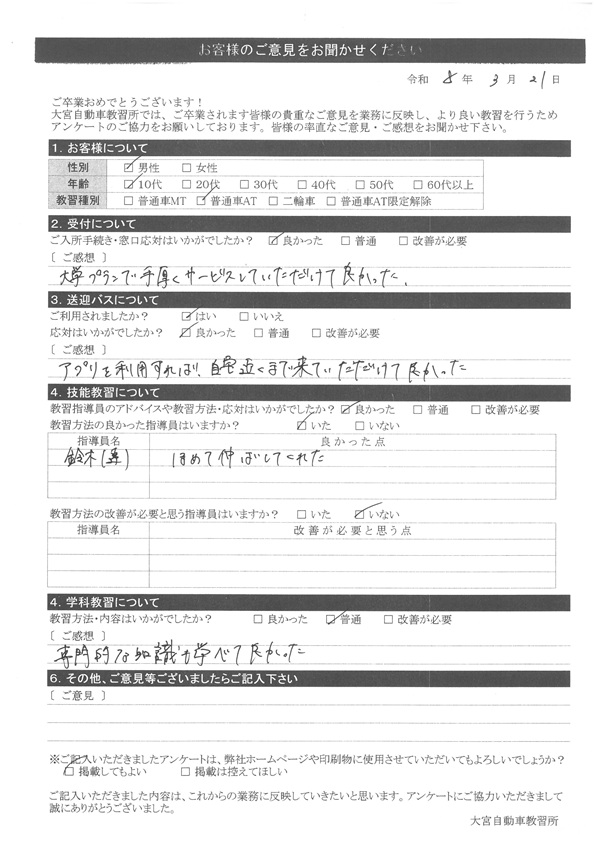 お客様のご意見をお聞かせください
令和 8 年 3 月 21 日
ご卒業おめでとうございます！
大宮自動車教習所では、ご卒業されます皆様の貴重なご意見を業務に反映し、より良い教習を行うため
アンケートのご協力をお願いしております。皆様の率直なご意見・ご感想をお聞かせ下さい。
1. お客様について
性別 ☑ 男性 □ 女性
年齢 ☑ 10代 □ 20代 □ 30代 □ 40代 □ 50代 □ 60代以上
教習種別 □ 普通車MT ☑ 普通車AT □ 二輪車 □ 普通車AT限定解除
2. 受付について
ご入所手続き・窓口応対はいかがでしたか? ☑ 良かった □ 普通 □ 改善が必要
[ ご感想 ]
大学プランで手厚くサービスしていただけて良かった。
3. 送迎バスについて
ご利用されましたか? ☑ はい □ いいえ
応対はいかがでしたか? ☑ 良かった □ 普通 □ 改善が必要
[ ご感想 ]
アプリを利用すれば、自宅近くまで来ていただけて良かった
4. 技能教習について
教習指導員のアドバイスや教習方法・応対はいかがでしたか? ☑ 良かった □ 普通 □ 改善が必要
教習方法の良かった指導員はいますか? ☑ いた □ いない
指導員名 良かった点
鈴木( ) ほめて伸ばしてくれた
教習方法の改善が必要と思う指導員はいますか? □ いた ☑ いない
指導員名 改善が必要と思う点
4. 学科教習について
教習方法・内容はいかがでしたか? □ 良かった ☑ 普通 □ 改善が必要
[ ご感想 ]
専門的な知識も学べて良かった
6. その他、ご意見等ございましたらご記入下さい
[ ご意見 ]
※ご記入いただきましたアンケートは、弊社ホームページや印刷物に使用させていただいてもよろしいでしょうか?
☑ 掲載してもよい □ 掲載は控えてほしい
ご記入いただきました内容は、これからの業務に反映していきたいと思います。アンケートにご協力いただきまして
誠にありがとうございました。
大宮自動車教習所